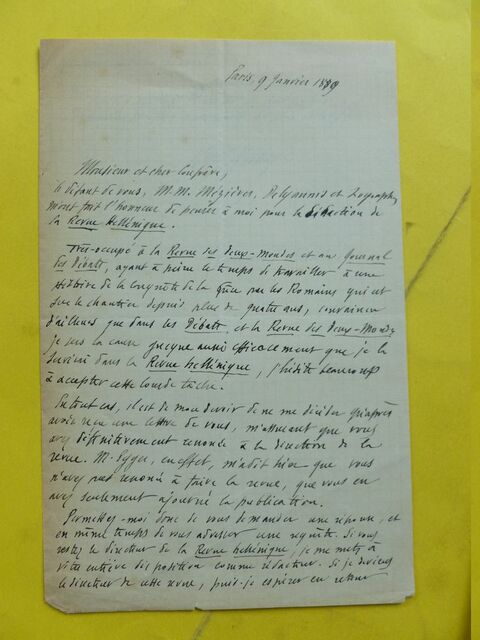 Paris, 9 Janvier 1889
Monsieur et cher Confrère,
à défaut de vous, M.M. Mézières, Delyannis et Zographos
m'ont fait l'honneur de penser à moi pour la direction de
la Revue Hellénique.
Très-occupé à la Revue des deux-Mondes et au Journal
des Débats, ayant à peine le temps de travailler à une
Histoire de la Conquête de la Grèce par les Romains qui est
sur le chantier depuis plus de quatre ans, convaincu
d'ailleurs que dans les Débats et la Revue des deux-Mondes
je sers la cause grecque aussi efficacement que je la
servirai dans la Revue Hellénique, j'hésite beaucoup
à accepter cette lourde tâche.
En tout cas, il est de mon devoir de ne me décider qu'après
avoir reçu une lettre de vous, m'assurant que vous
avez définitivement renoncé à la direction de la
revue. M. Egger, en effet, m'a dit hier que vous
n'avez pas renoncé à faire la revue, que vous en
avez seulement ajourné la publication.
Permettez-moi donc de vous demander une réponse, et
en même temps de vous adresser une requête. Si vous
restez le directeur de la Revue Hellénique, je me mets à
votre entière disposition comme rédacteur. Si je deviens
le directeur de cette revue, puis-je espérer en retour